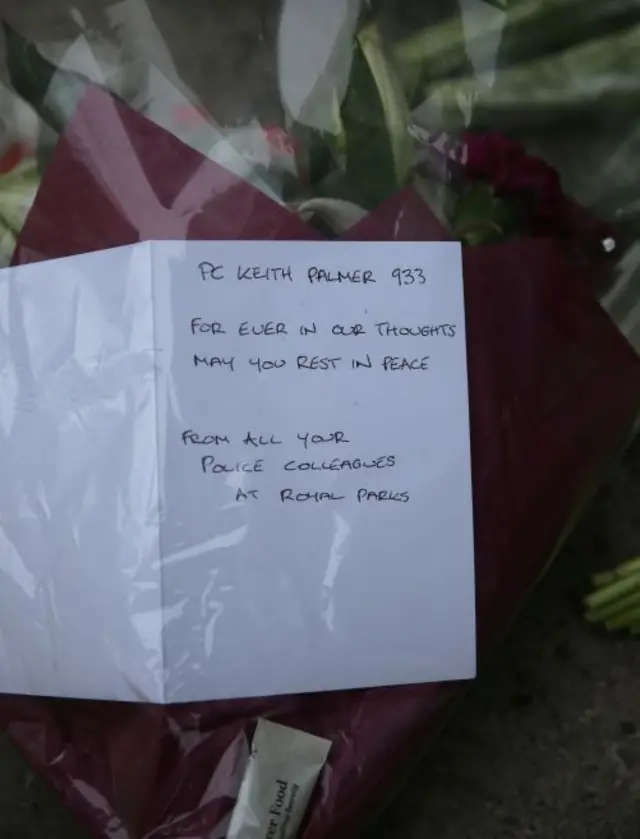 PC KEITH PALMER 933
FOR EVER IN OUR THOUGHTS
MAY YOU REST IN PEACE
FROM ALL YOUR
POLICE COLLEAGUES
AT ROYAL PARKS
Food